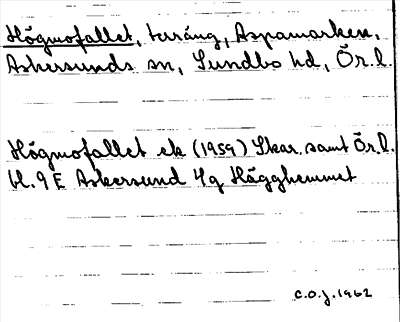 Högmofallet, terräng, Aspamarken,
Askersunds sn, Sundbo hd, Ör. l.
Högmofallet ek (1959) Skar. samt Ör. l.
bl. 9 E Askersund 4g Hägghemmet
C.O.J. 1962